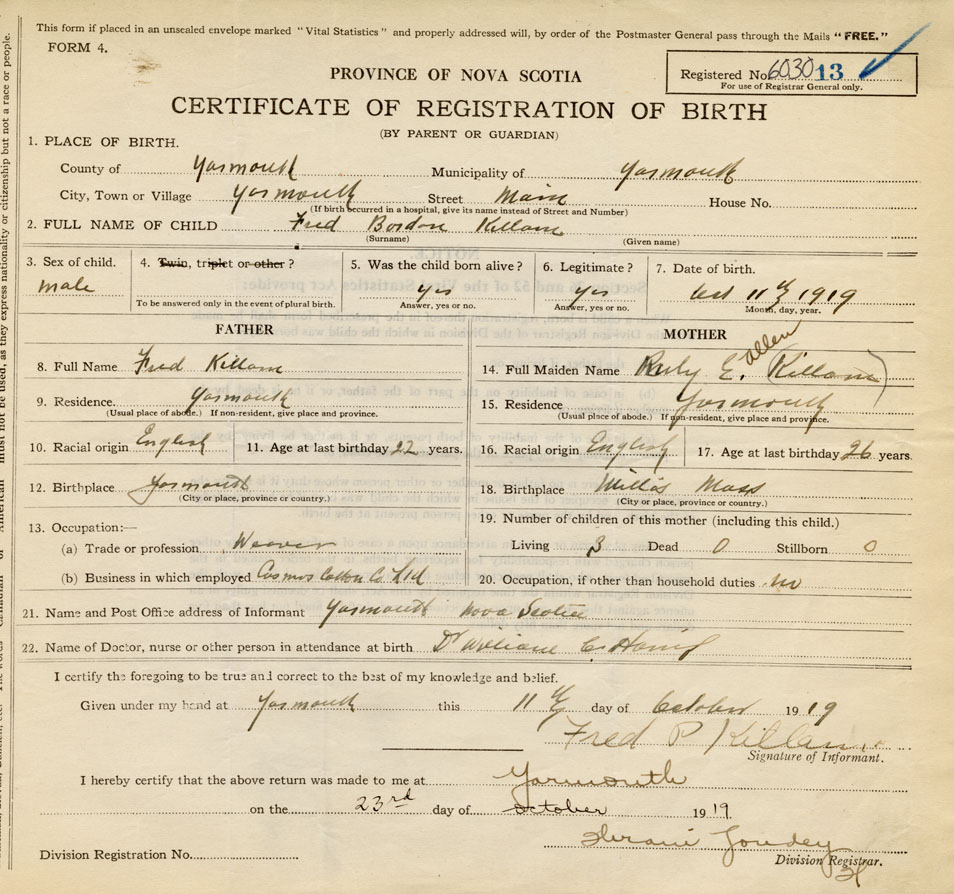 This form if placed in an unsealed envelope marked "Vital Statistics" and properly addressed will, by order of the Postmaster General pass through the Mails "FREE."
FORM 4.
PROVINCE OF NOVA SCOTIA
Registered No. 603013
For use of Registrar General only.
CERTIFICATE OF REGISTRATION OF BIRTH
(BY PARENT OR GUARDIAN)
1. PLACE OF BIRTH.
County of Yarmouth Municipality of Yarmouth
City, Town or Village Yarmouth Street Main House No.
(If birth occurred in a hospital, give its name instead of Street and Number)
2. FULL NAME OF CHILD Fred Bordon Killam
(Surname) (Given name)
3. Sex of child. 4. Twin, triplet or other? 5. Was the child born alive? 6. Legitimate? 7. Date of birth.
male yes yes Oct 11th 1919
To be answered only in the event of plural birth. Answer, yes or no. Answer, yes or no. Month, day, year.
FATHER MOTHER
8. Full Name Fred Killam
14. Full Maiden Name Ruby E. Allen (Killam)
9. Residence. Yarmouth
(Usual place of abode.) If non-resident, give place and province.
15. Residence Yarmouth
(Usual place of abode.) If non-resident, give place and province.
10. Racial origin English 11. Age at last birthday 22 years.
16. Racial origin English 17. Age at last birthday 26 years.
12. Birthplace Yarmouth
(City or place, province or country.)
18. Birthplace Mass
(City or place, province or country.)
13. Occupation:—
(a) Trade or profession Weaver
(b) Business in which employed Cosmos Cotton Co. Ltd
19. Number of children of this mother (including this child.)
Living 3 Dead 0 Stillborn 0
20. Occupation, if other than household duties no
21. Name and Post Office address of Informant Yarmouth Nova Scotia
22. Name of Doctor, nurse or other person in attendance at birth Dr William C.
I certify the foregoing to be true and correct to the best of my knowledge and belief.
Given under my hand at Yarmouth this 11th day of October 1919
Fred P Killam
Signature of Informant.
I hereby certify that the above return was made to me at Yarmouth
on the 23rd day of October 1919
Goudey
Division Registration No. Division Registrar.
must not be used, as they express nationality or citizenship but not a race or people.